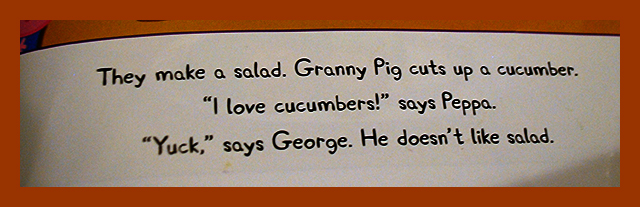 They make a salad. Granny Pig cuts up a cucumber.
“I love cucumbers!” says Peppa.
“Yuck,” says George. He doesn't like salad.